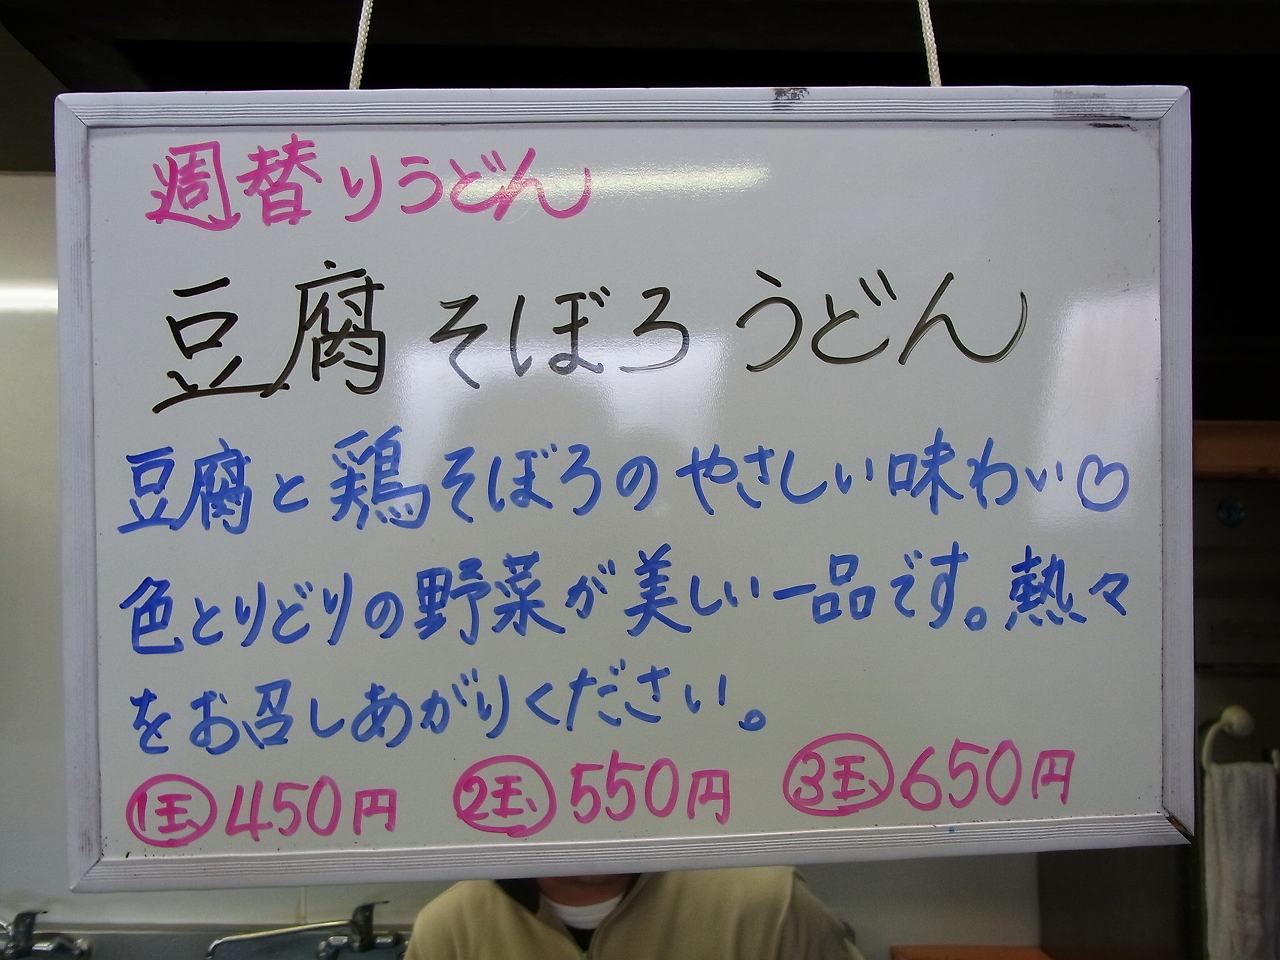 週替りうどん
豆腐そぼろ うどん
豆腐と鶏そぼろのやさしい味わい♡
色とりどりの野菜が美しい一品です。熱々
をお召しあがりください。
①玉 450円 ②玉 550円 ③玉 650円